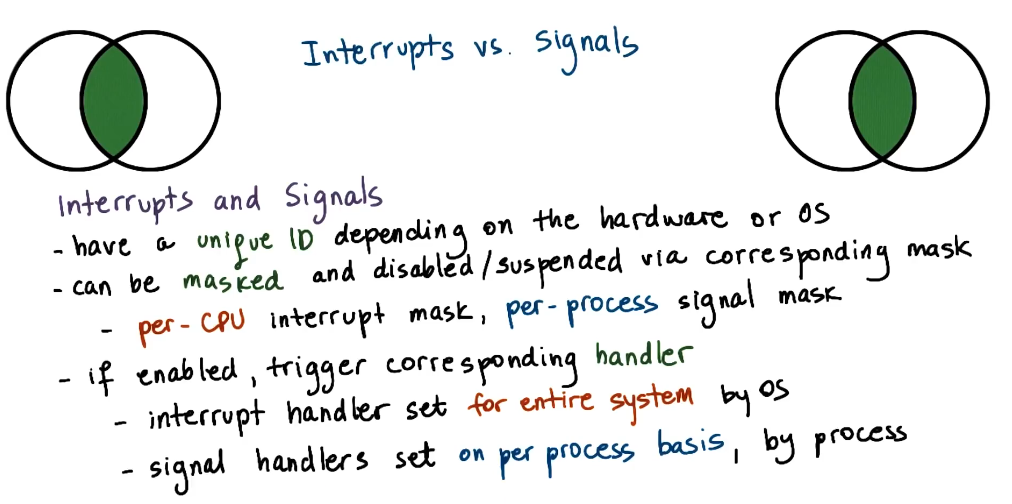 Interrupts vs. Signals
Interrupts and Signals
- have a unique ID depending on the hardware or OS
- can be masked and disabled/suspended via corresponding mask
- per-CPU interrupt mask, per-process signal mask
- if enabled, trigger corresponding handler
- interrupt handler set for entire system by OS
- signal handlers set on per process basis, by process